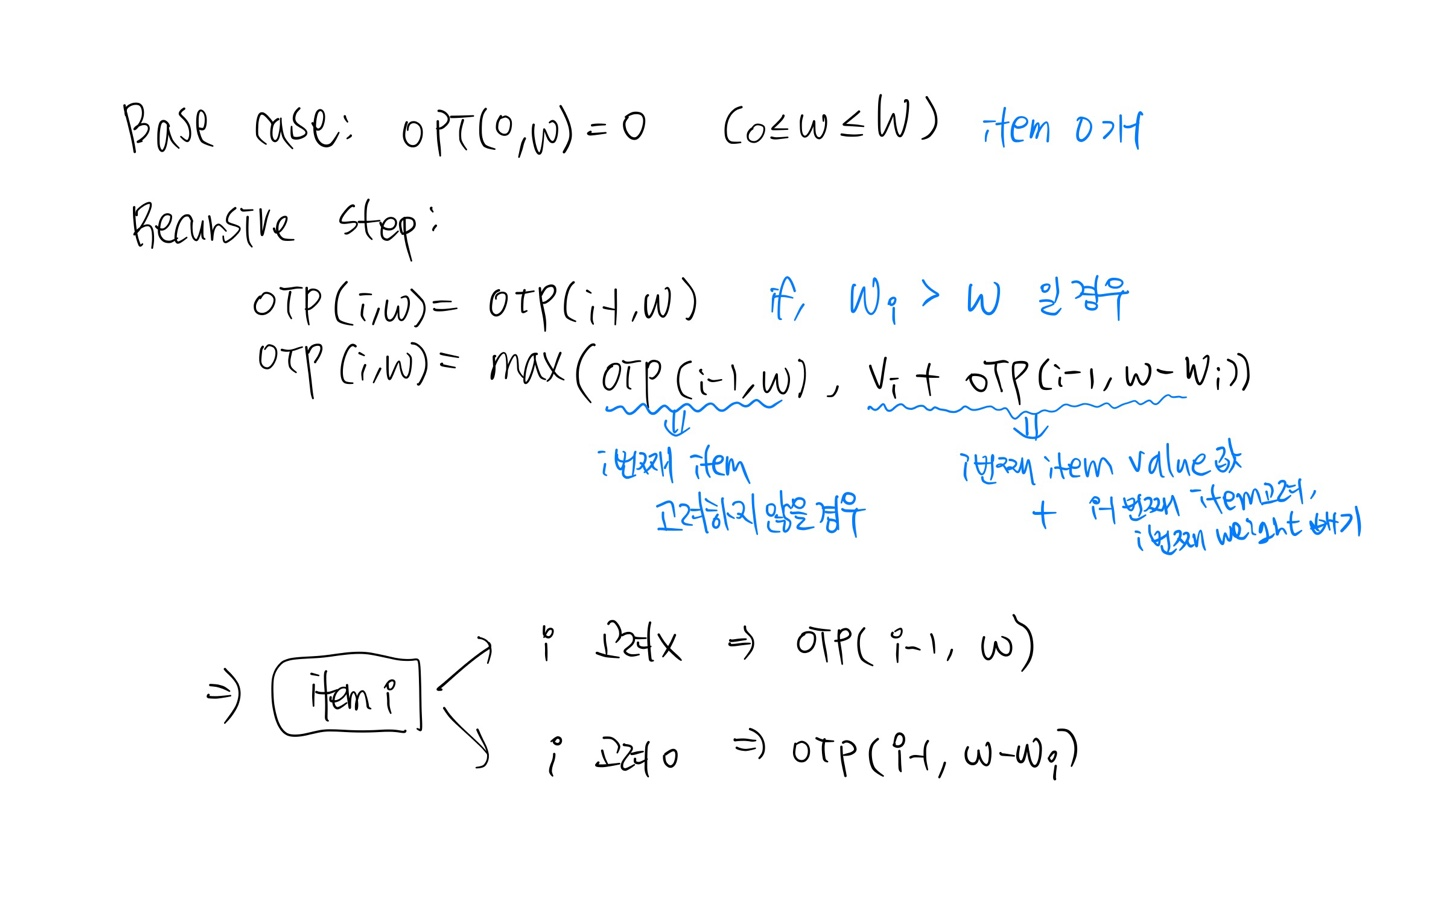 Base case: OPT(0,w)=0 (0≤w≤W) item 0개
Recursive step:
OTP(i,w)= OTP(i-1,w) if, wᵢ > w 일 경우
OTP(i,w)= max(OTP(i-1,w), vᵢ + OTP(i-1,w-wᵢ))
⇓ ⇓
i번째 item i번째 item value 값
고려하지 않을 경우 + i-1 번째 item 고려,
i번째 weight 빼기
i 고려x ⇒ OTP(i-1, w)
⇒ item i
i 고려o ⇒ OTP(i-1, w-wᵢ)